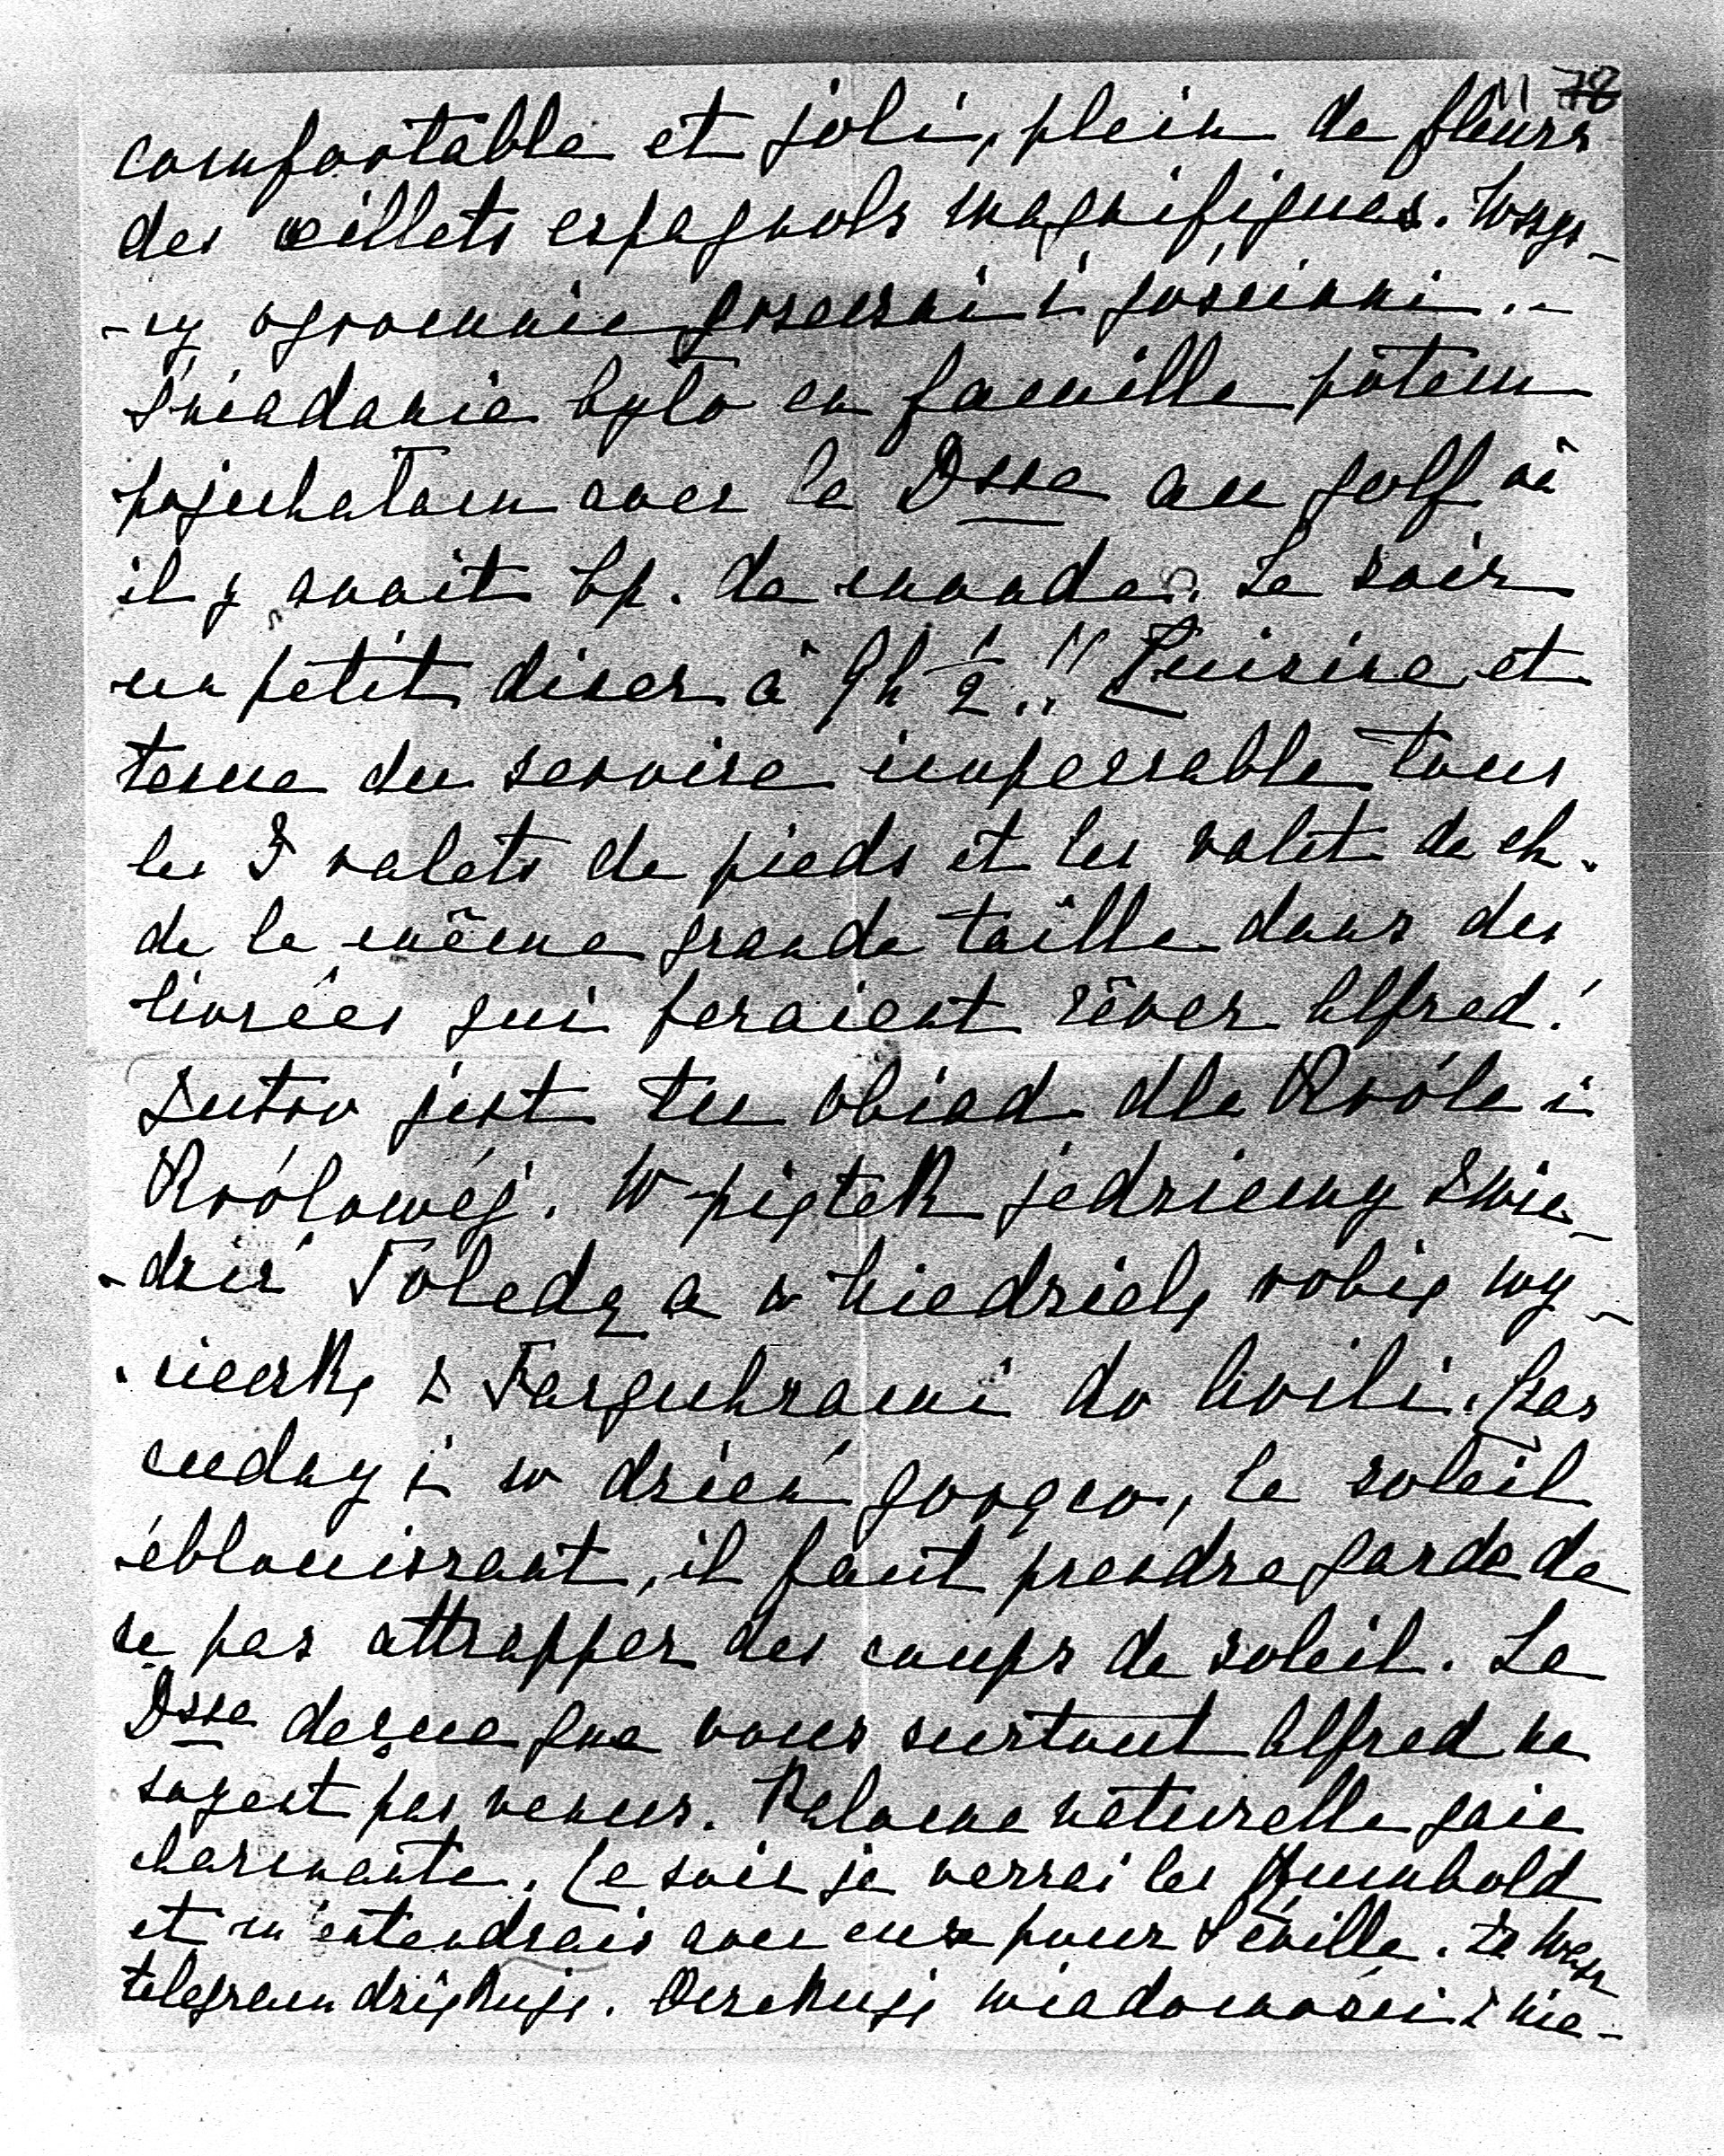 11 78
comfortable et joli, plein de fleurs
des œillets espagnols magnifiques. Wszys-
-cy ogromnie grzeczni i gościnni.-
Śniadanie było en famille potem
pojechałam avec la Dsse au golf où
il y avait bp. de monde. Le soir
un petit diner à 9h ½!! Cuisine et
tenue du service impeccable tous
les 5 valets de pieds et les valet de ch.
de la même grande taille dans des
livrées qui feraient rêver Alfred!
Jutro jest tu obiad dla Króla i
Królowéj. W piątek jedziemy zwie-
-dzić Toledę a w Niedzielę robię wy-
-cieczkę z Farquhrami do Avili. Czas
cudny i w dzień gorąco, le soleil
éblouissant, il faut prendre garde de
ne pas attrapper des coups de soleil. La
Dsse desolée que vous surtout Alfred ne
soyent pas venus. Kalome naturelle gaie
charmante. Ce soir je verrai les Rumbold
et m'entendrais avec eux pour Séville. Za Wasz
telegram dziękuję. Oczekuję wiadomości z Nie-